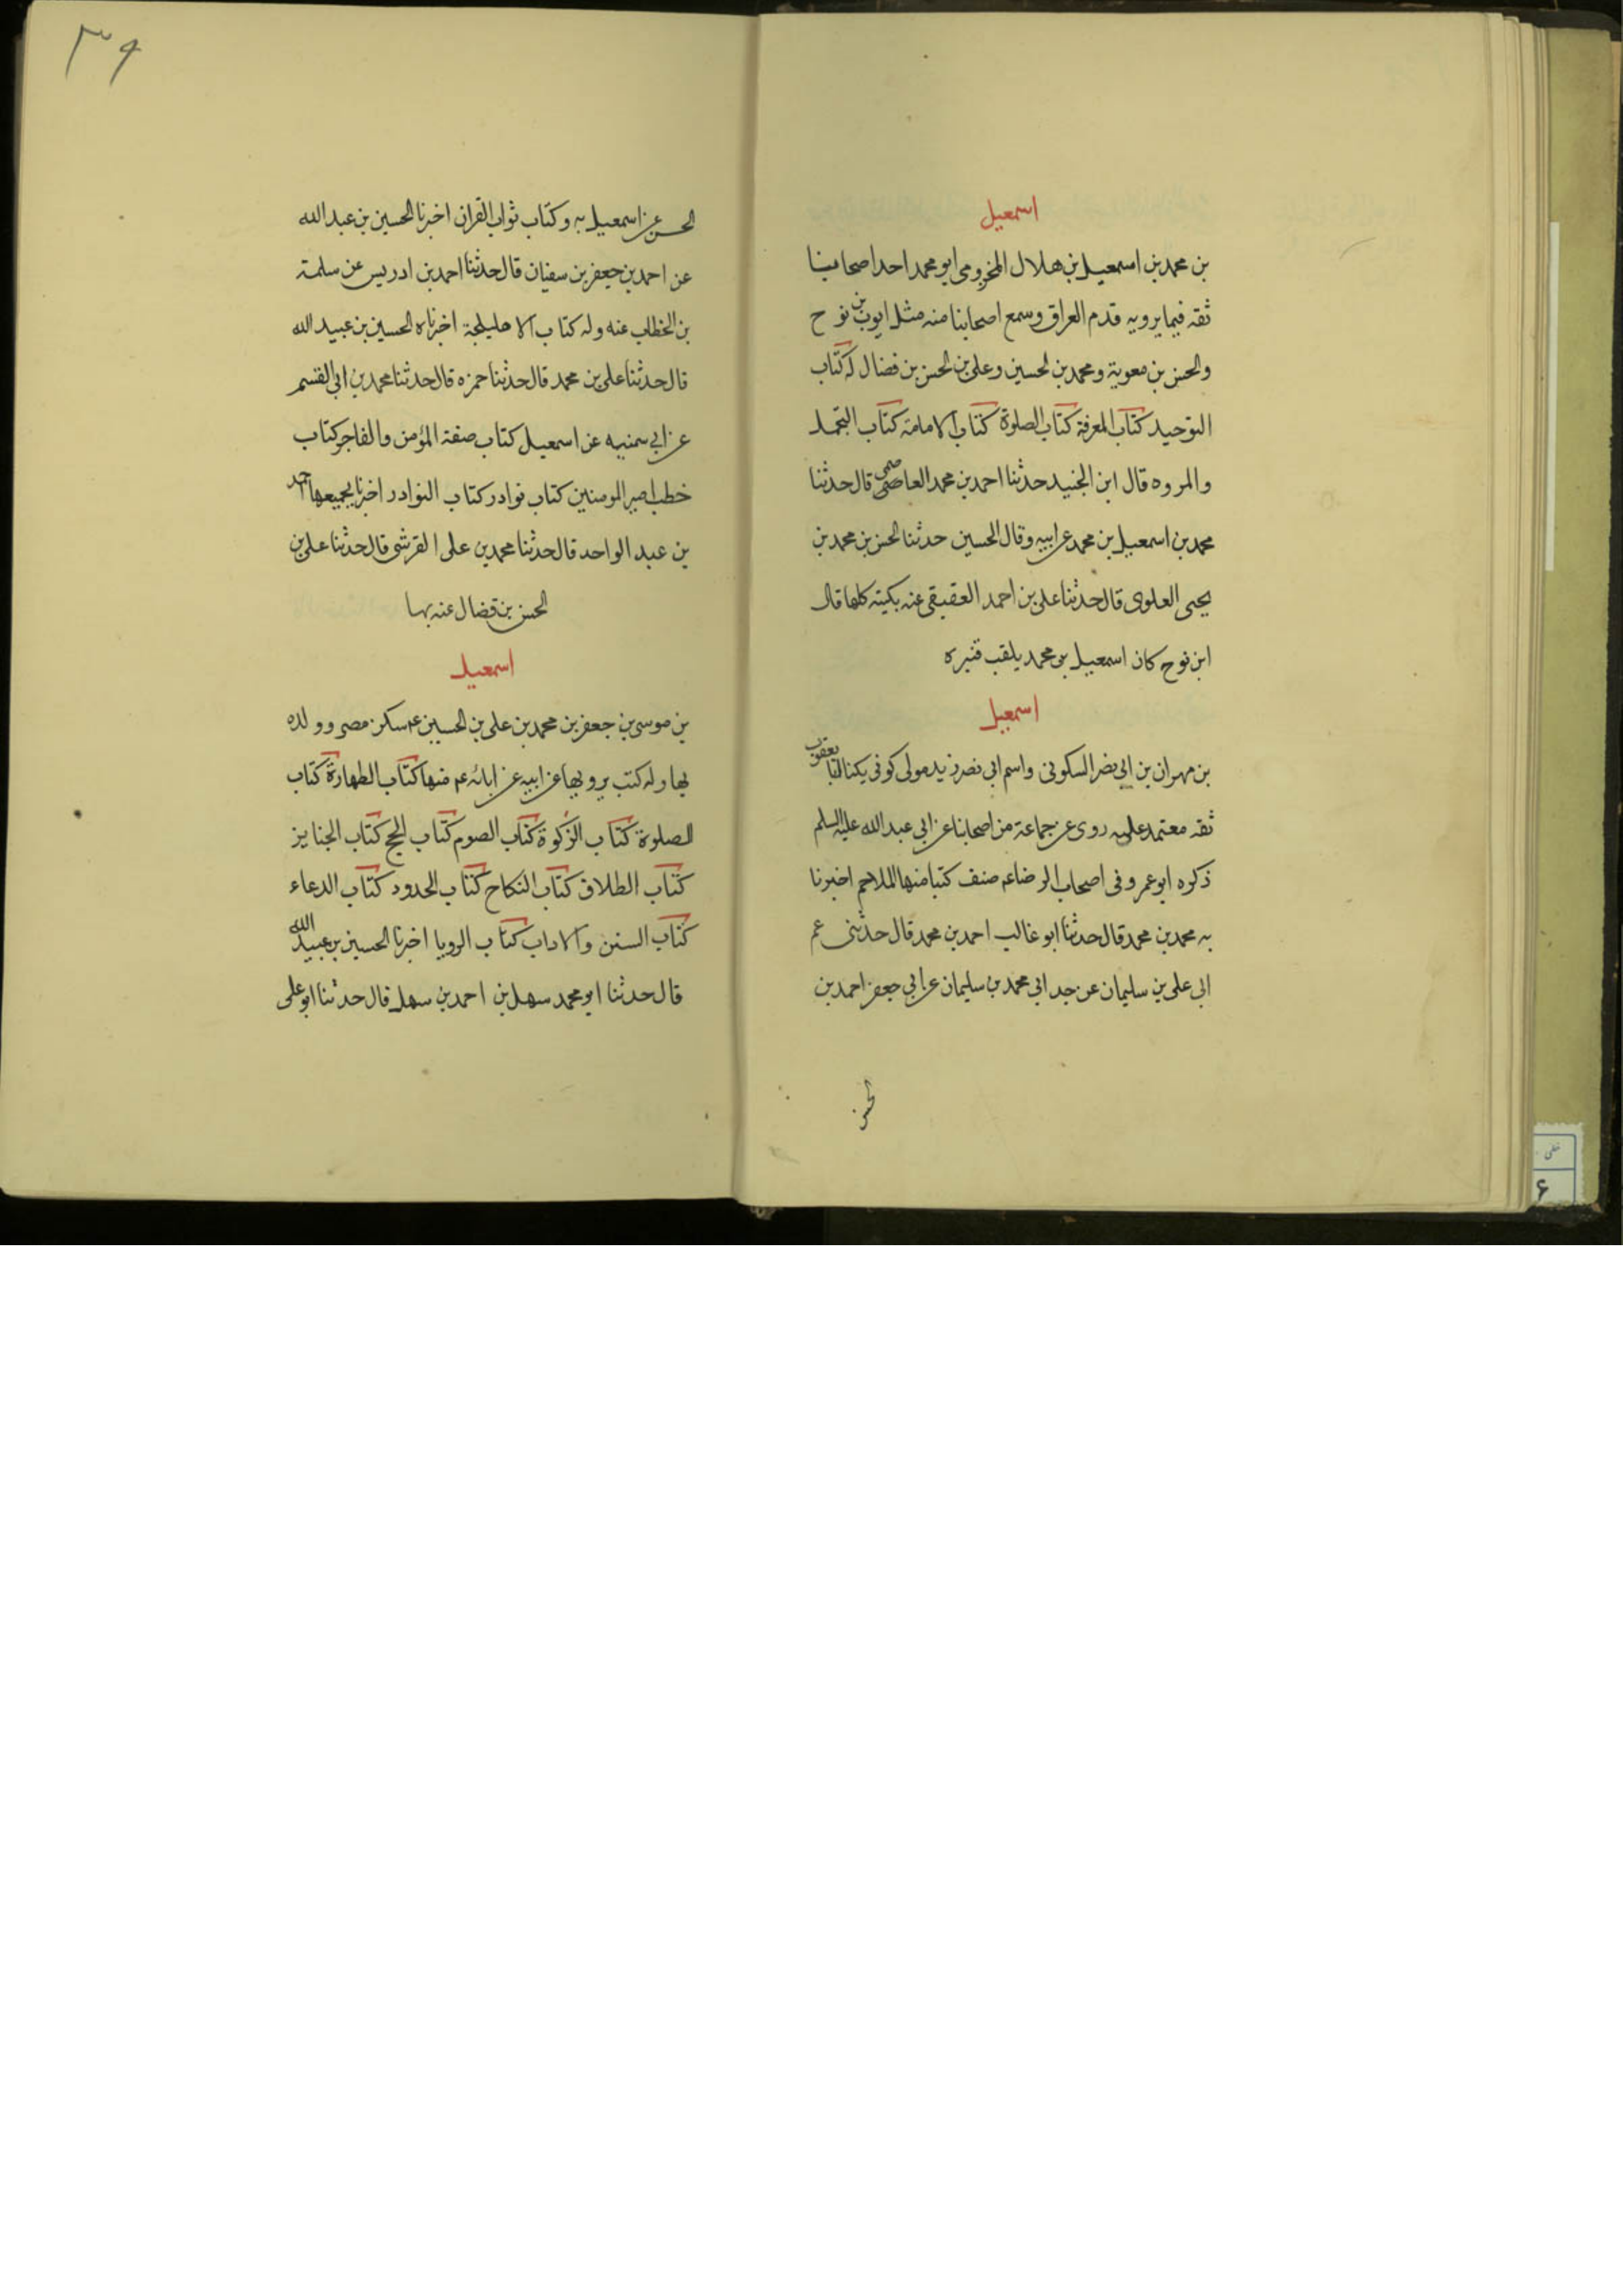 اسمعيل
بن محمد بن اسمعيل بن هلال المخزومى ابو محمد احد اصحابنا
ثقه فيما يرويه قدم العراق وسمع اصحابنا منه مثل ايوب بن نوح
والحسن بن معوية ومحمد بن الحسين وعلى بن الحسن بن فضال له كتاب
التوحيد كتاب المعرفة كتاب الصلوة كتاب الامامة كتاب التجمل
والمروه قال ابن الجنيد حدثنا احمد بن محمد العاصمى قال حدثنا
محمد بن اسمعيل بن محمد عن ابيه وقال الحسين حدثنا الحسن بن محمد بن
يحيى العلوى قال حدثنا على بن احمد العقيقى عنه بكتبه كلها قال
ابن نوح كان اسمعيل بن محمد يلقب قنبره
اسمعيل
بن مهران بن ابى نصر السكونى واسم ابى نصر زيد مولى كوفى يكنا ابا يعقوب
ثقه معتمد عليه روى عن جماعة من اصحابنا عن ابى عبد الله عليه السلم
ذكره ابو عمرو فى اصحاب الرضا عم صنف كتبا منها الملاحم اخبرنا
به محمد بن محمد قال حدثنا ابو غالب احمد بن محمد قال حدثنى عم
ابى على بن سليمان عن جد ابى محمد بن سليمان عن ابى جعفر احمد بن
الحسن
٣٩
الحسن عن اسمعيل به وكتاب ثواب القران اخبرنا الحسين بن عبد الله
عن احمد بن جعفر بن سفيان قال حدثنا احمد بن ادريس عن سلمة
بن الخطاب عنه وله كتاب الاهليلجة اخبرناه الحسين بن عبيد الله
قال حدثنا على بن محمد قال حدثنا حمزه قال حدثنا محمد بن ابى القسم
عن ابى سمنيه عن اسمعيل كتاب صفة المؤمن والفاجر كتاب
خطب امير المومنين كتاب نوادر كتاب النوادر اخبرنا بجميعها احمد
بن عبد الواحد قال حدثنا محمد بن على القرشى قال حدثنا على بن
الحسن بن فضال عنه بها
اسمعيل
بن موسى بن جعفر بن محمد بن على بن الحسين عم سكن مصر وولده
بها وله كتب يرويها عن ابيه عن ابائه عم منها كتاب الطهارة كتاب
الصلوة كتاب الزكوة كتاب الصوم كتاب الحج كتاب الجنايز
كتاب الطلاق كتاب النكاح كتاب الحدود كتاب الدعاء
كتاب السنن والاداب كتاب الرويا اخبرنا الحسين بن عبيد الله
قال حدثنا ابو محمد سهل بن احمد بن سهل قال حدثنا ابو على